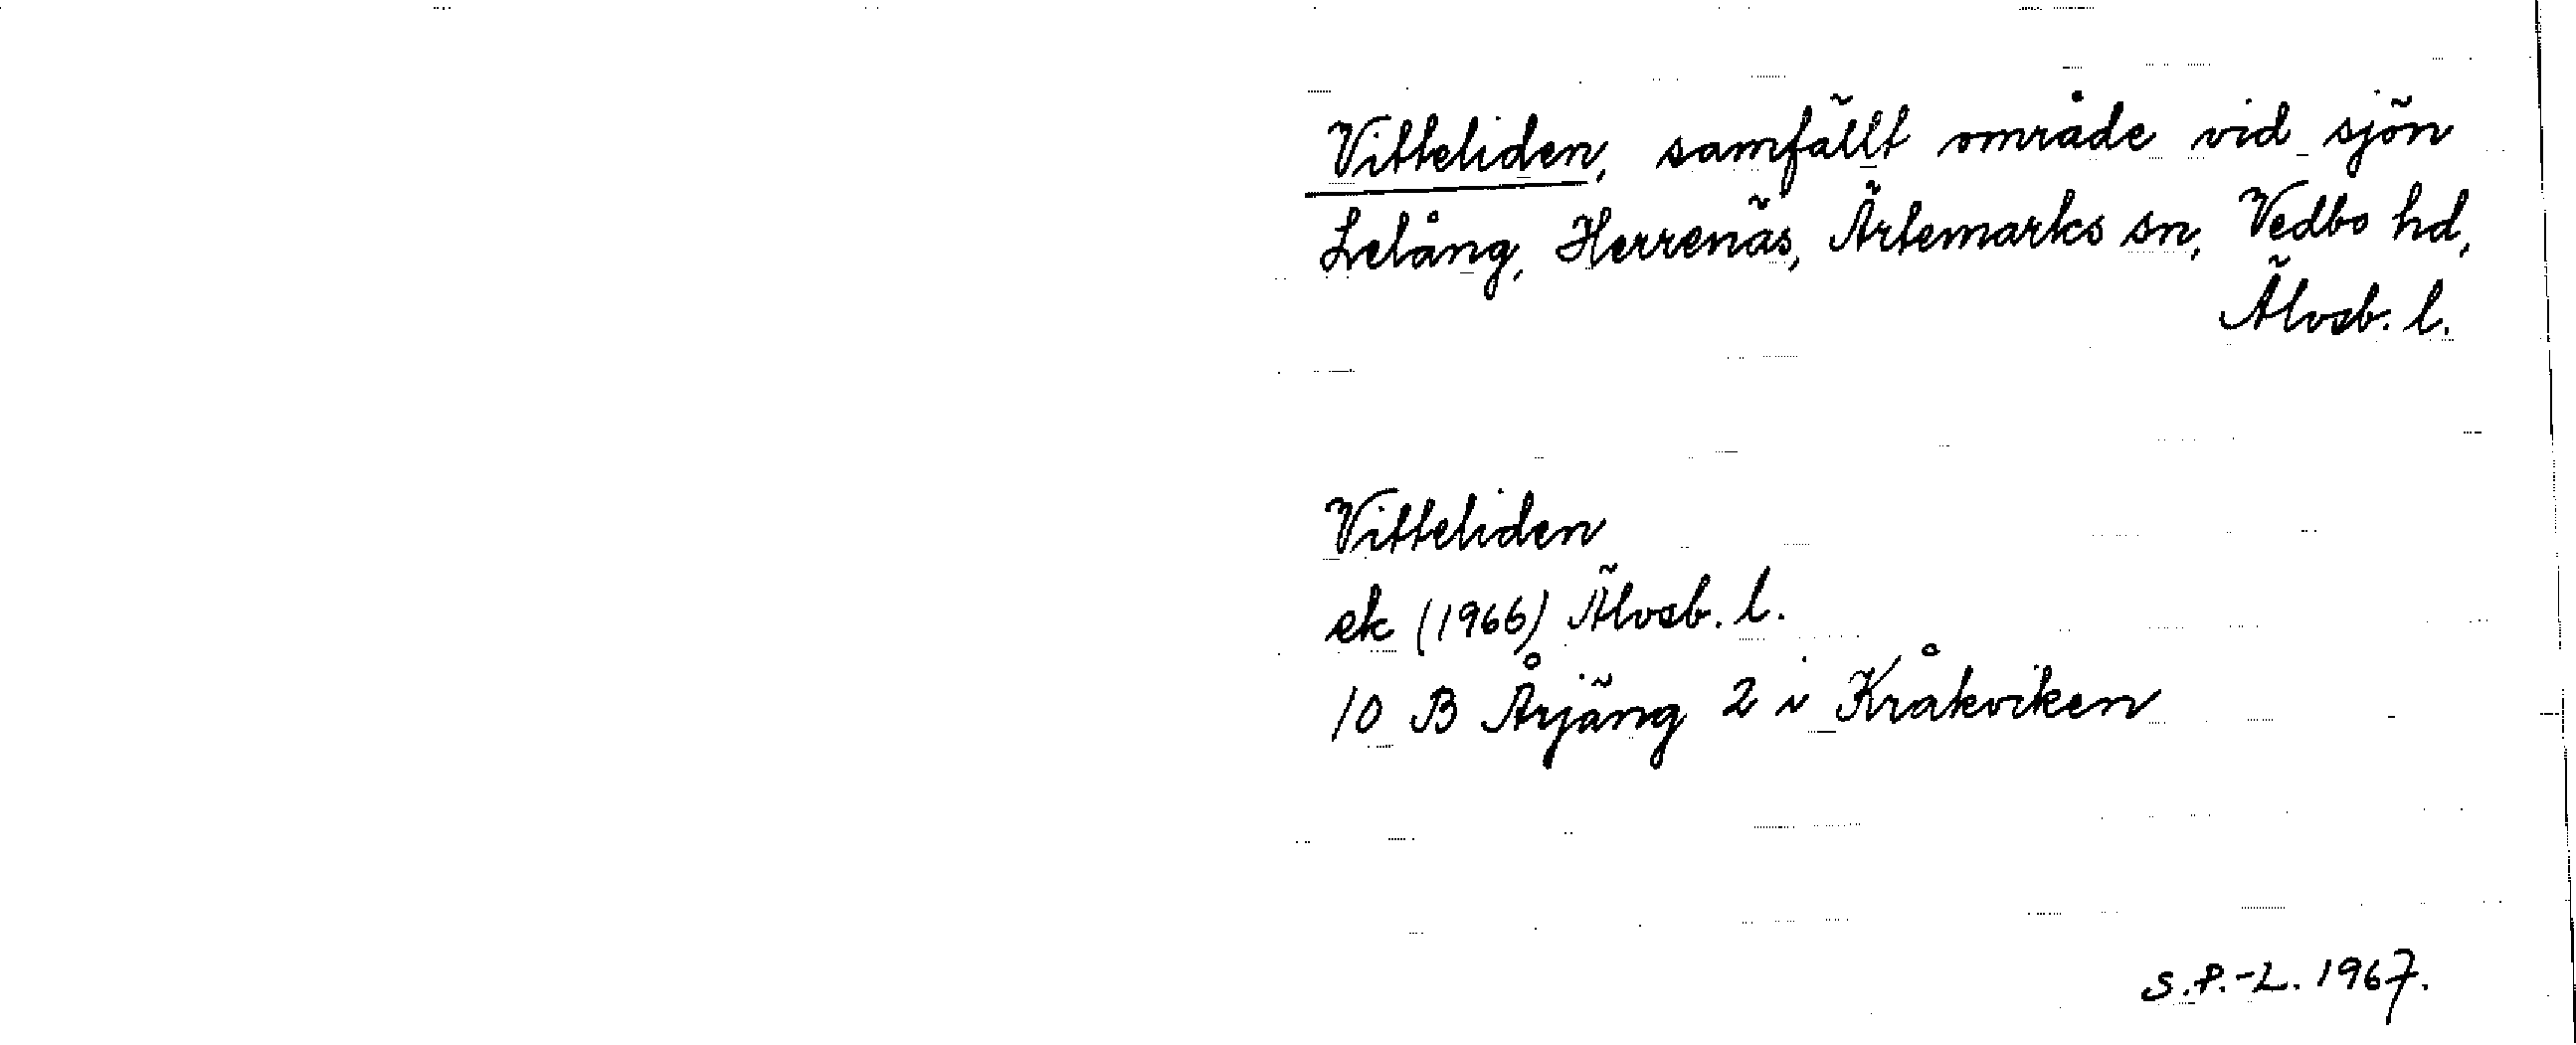 Vitteliden, samfällt område vid sjön
Lelång, Herrenäs, Ärtemarks sn, Vedbo hd,
Älvsb. l.
Vitteliden
ek (1966) Älvsb. l.
10 B Årjäng 2 i Kråkviken
S.P.-L. 1967.